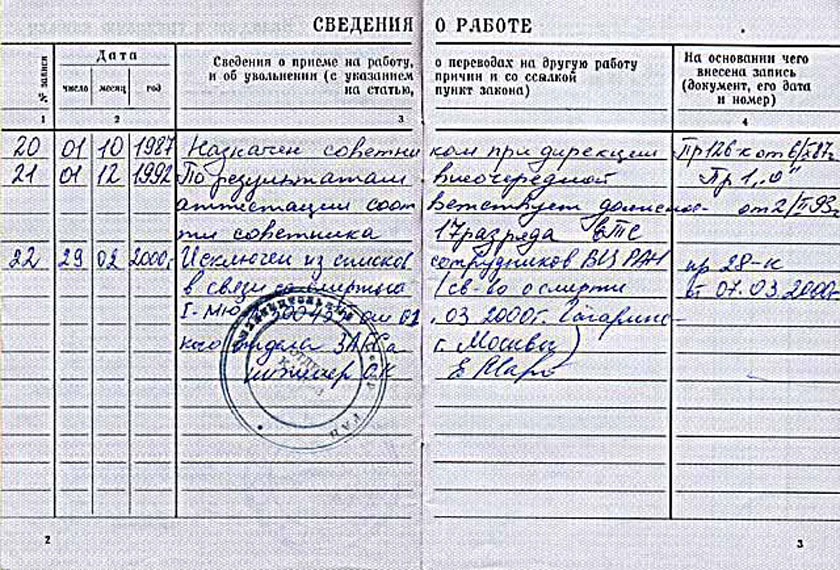 СВЕДЕНИЯ О РАБОТЕ
№ записи
Дата
число месяц год
Сведения о приеме на работу, о переводах на другую работу
и об увольнении (с указанием причин и со ссылкой
на статью, пункт закона)
На основании чего
внесена запись
(документ, его дата
и номер)
1 2 3 4
20 01 10 1987 Назначен советником при дирекции Пр 126-к от 6/X 87г.
21 01 12 1992 По результатам внеочередной Пр 1 „о"
аттестации соот ветствует должнос- от 2/II 93г.
ти советника 17 разряда ЕТС
22 29 02 2000г. Исключен из списков сотрудников ВЦ РАН пр 28-к
в связи со смертью (св-во о смерти от 07.03.2000г.
I-МЮ от 01 .03 2000г. Гагаринс-
кого отдела ЗАГСа г. Москвы)
инженер ОК
2
3